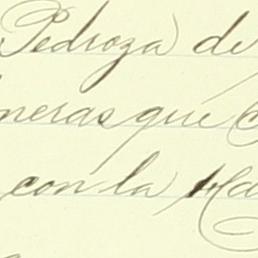 Pedroza de
neras que
con la Ha